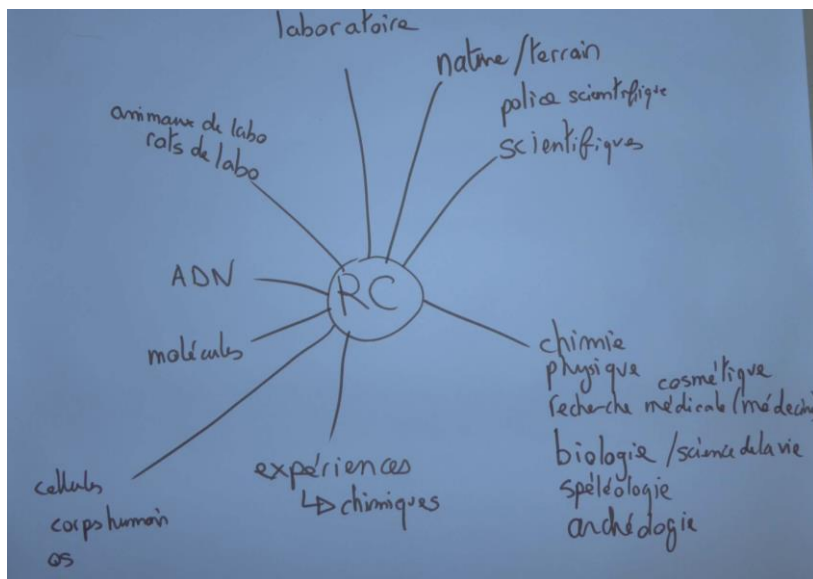 laboratoire
nature/terrain
police scientifique
scientifiques
animaux de labo
rats de labo
ADN
RC
molécules
chimie
physique cosmétique
recherche médicale (médecin
biologie /science de la vie
spéléologie
archéologie
expériences
↳ chimiques
cellules
corps humain
os